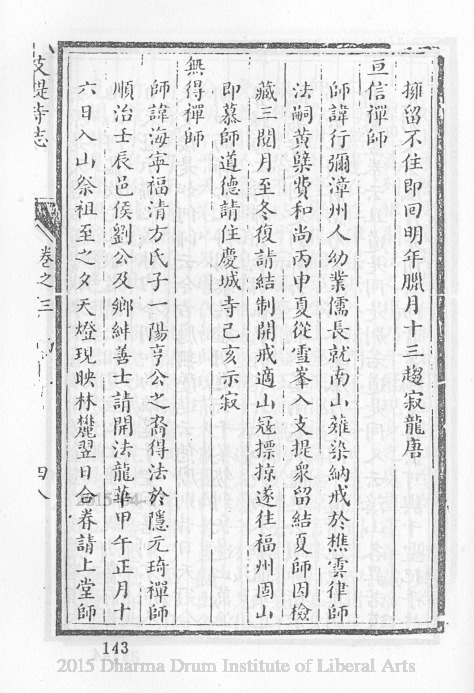 擁留不住即回明年臘月十三趨寂龍唐
亘信禪師
師諱行彌漳州人幼業儒長就南山薙染納戒於樵雲律師
法嗣黃檗費和尚丙申夏從雪峯入支提衆留結夏師因檢
藏三閱月至冬復請結制開戒適山冦摽掠遂往福州固山
即慕師道德請住慶城寺己亥示寂
無得禪師
師諱海寧福清方氏子一陽亨公之裔得法於隱元琦禪師
順治壬辰邑侯劉公及鄉紳善士請開法龍華甲午正月十
六日入山祭祖至之夕天燈現映林麓翌日合眷請上堂師
支提寺志
卷之三
四八
143
2015 Dharma Drum Institute of Liberal Arts